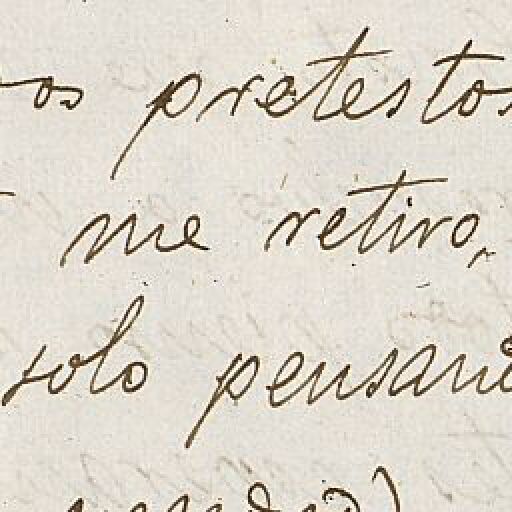 os pretestos
me retiro,
solo pensand